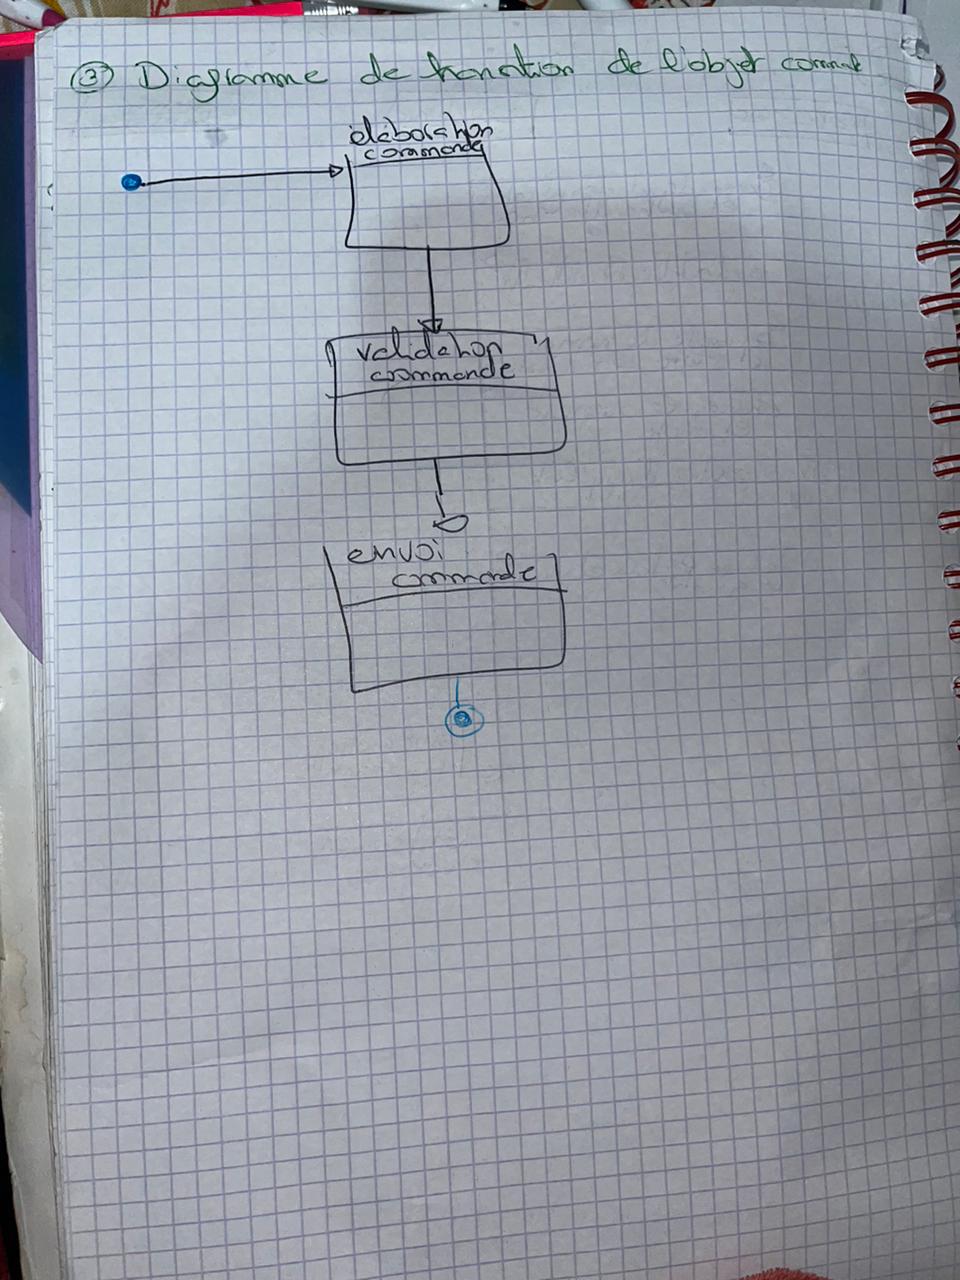 ③ Diagramme de transition de l'objet comma
élaboration
commande
validation
commande
envoi
commande